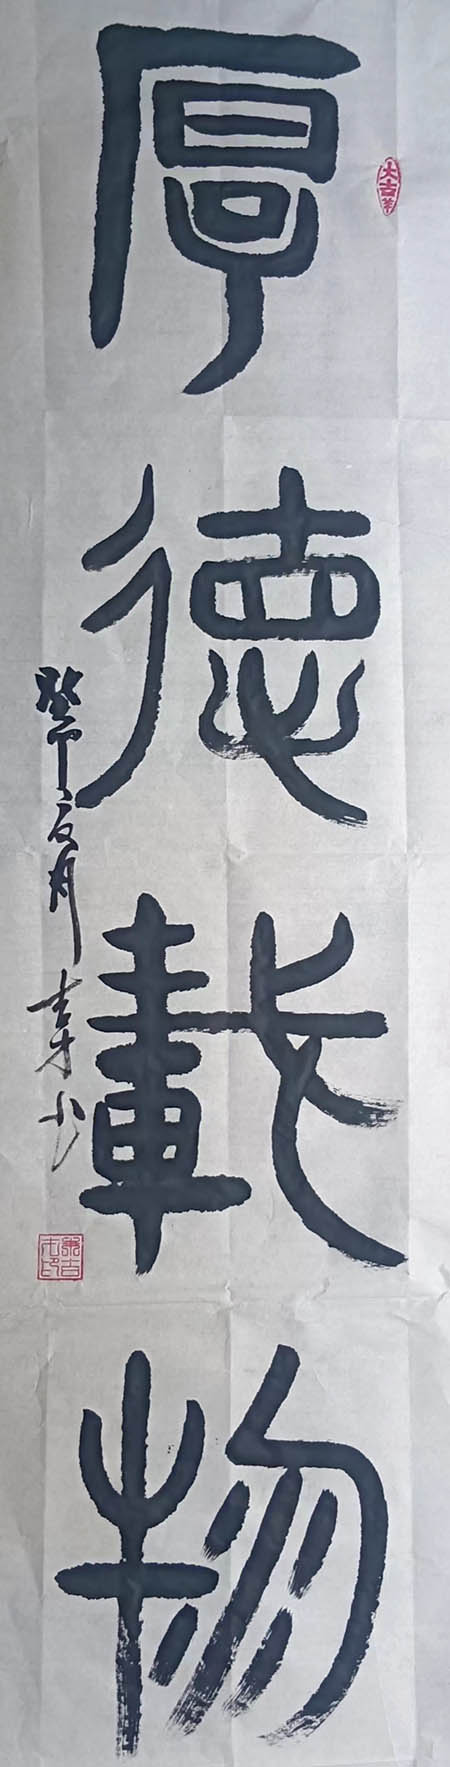 厚德載物
癸卯夏月
大古